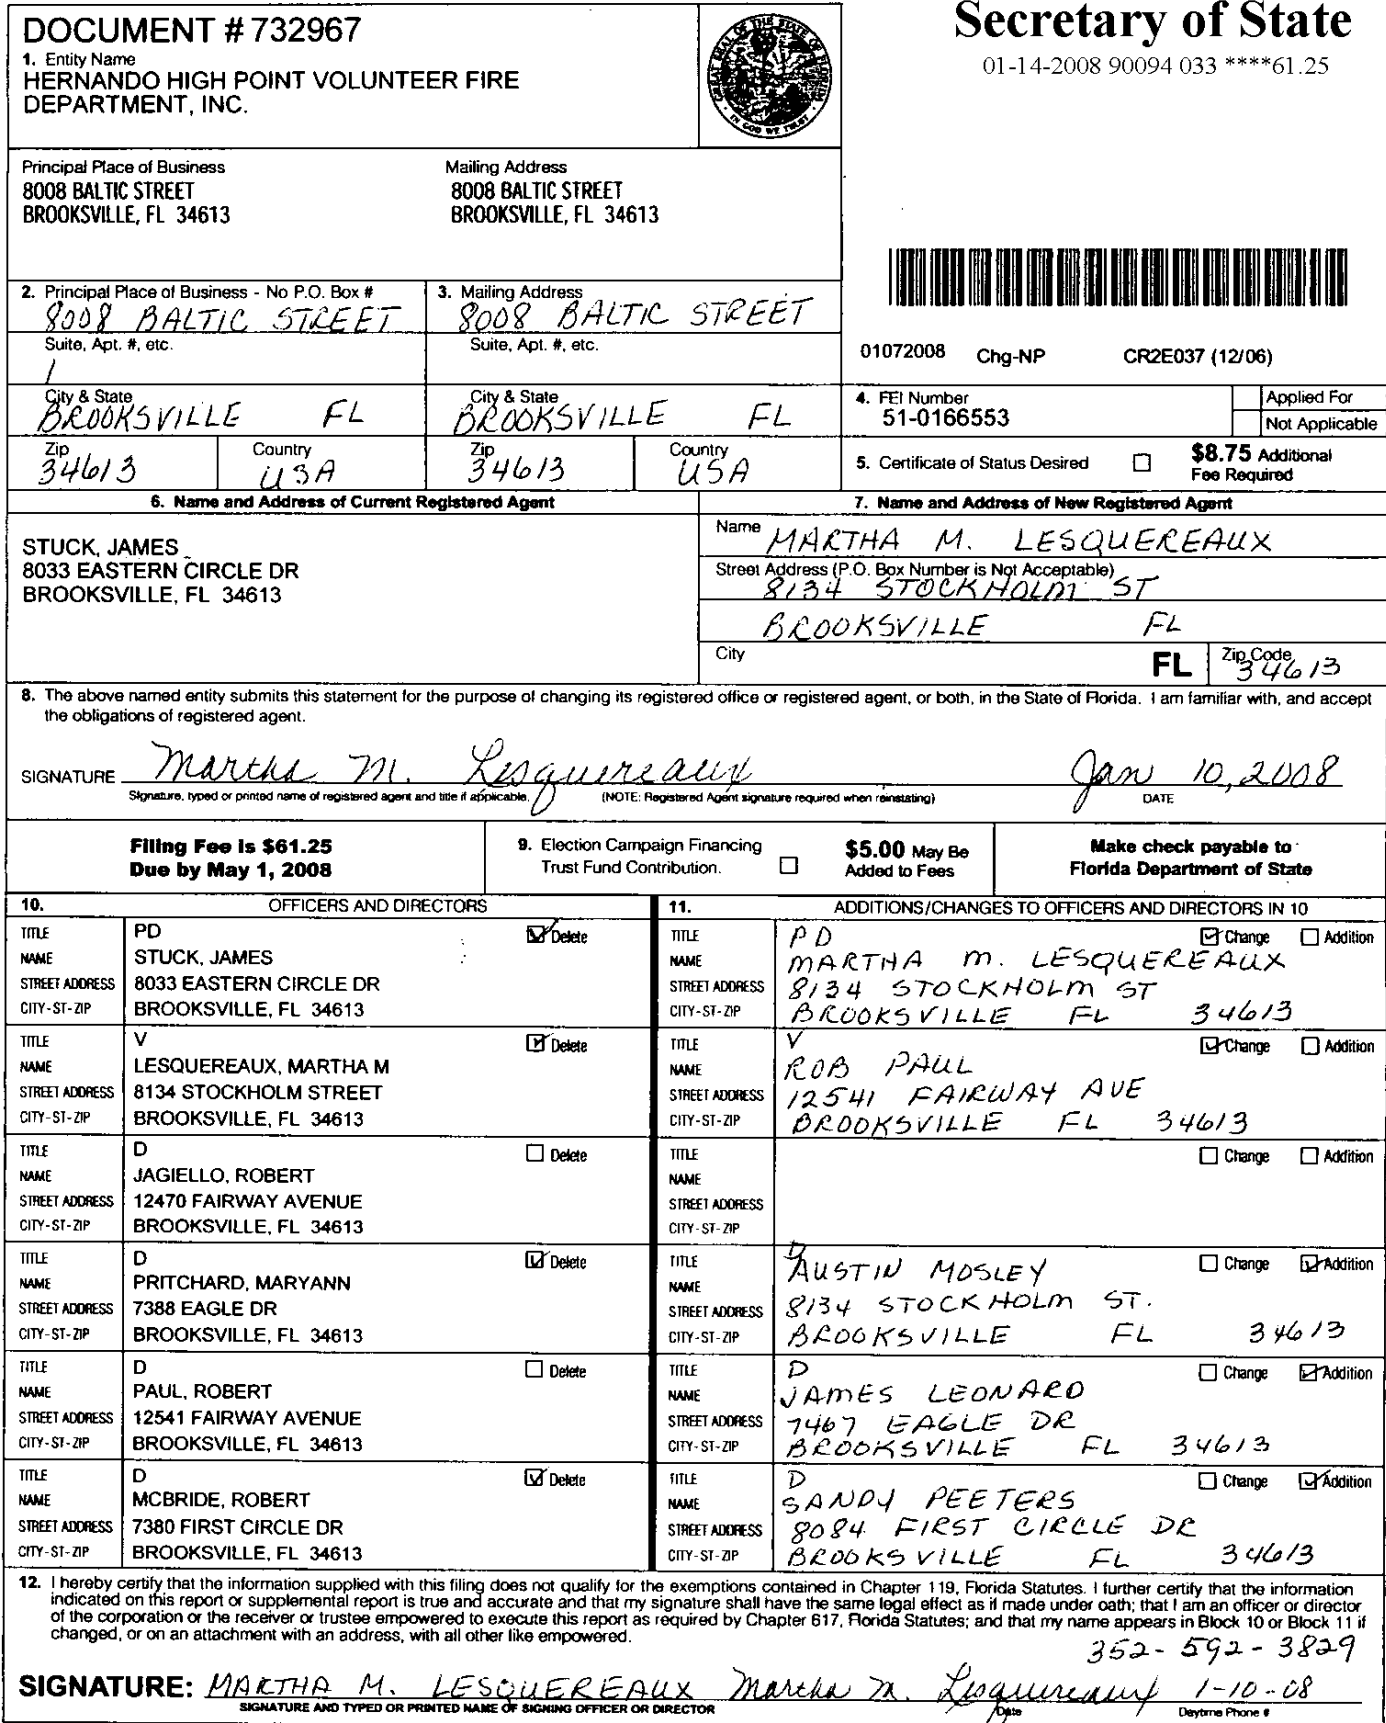 DOCUMENT # 732967
1. Entity Name
HERNANDO HIGH POINT VOLUNTEER FIRE
DEPARTMENT, INC.
Secretary of State
01-14-2008 90094 033 ****61.25
Principal Place of Business
8008 BALTIC STREET
BROOKSVILLE, FL 34613
Mailing Address
8008 BALTIC STREET
BROOKSVILLE, FL 34613
2. Principal Place of Business - No P.O. Box #
8008 BALTIC STREET
Suite, Apt. #, etc.
City & State
BROOKSVILLE FL
Zip
34613
Country
USA
3. Mailing Address
8008 BALTIC STREET
Suite, Apt. #, etc.
City & State
BROOKSVILLE FL
Zip
34613
Country
USA
01072008 Chg-NP CR2E037 (12/06)
4. FEI Number
51-0166553
Applied For
Not Applicable
5. Certificate of Status Desired
$8.75 Additional
Fee Required
6. Name and Address of Current Registered Agent
STUCK, JAMES
8033 EASTERN CIRCLE DR
BROOKSVILLE, FL 34613
7. Name and Address of New Registered Agent
Name MARTHA M. LESQUEREAUX
Street Address (P.O. Box Number is Not Acceptable)
8134 STOCKHOLM ST
BROOKSVILLE FL
City FL Zip Code
34613
8. The above named entity submits this statement for the purpose of changing its registered office or registered agent, or both, in the State of Florida. I am familiar with, and accept
the obligations of registered agent.
SIGNATURE Martha M. Lesquereaux Jan 10, 2008
Signature, typed or printed name of registered agent and title if applicable. (NOTE: Registered Agent signature required when reinstating) DATE
Filing Fee is $61.25
Due by May 1, 2008
9. Election Campaign Financing
Trust Fund Contribution.
$5.00 May Be
Added to Fees
Make check payable to
Florida Department of State
10. OFFICERS AND DIRECTORS
TITLE PD Delete
NAME STUCK, JAMES
STREET ADDRESS 8033 EASTERN CIRCLE DR
CITY-ST-ZIP BROOKSVILLE, FL 34613
TITLE V Delete
NAME LESQUEREAUX, MARTHA M
STREET ADDRESS 8134 STOCKHOLM STREET
CITY-ST-ZIP BROOKSVILLE, FL 34613
TITLE D Delete
NAME JAGIELLO, ROBERT
STREET ADDRESS 12470 FAIRWAY AVENUE
CITY-ST-ZIP BROOKSVILLE, FL 34613
TITLE D Delete
NAME PRITCHARD, MARYANN
STREET ADDRESS 7388 EAGLE DR
CITY-ST-ZIP BROOKSVILLE, FL 34613
TITLE D Delete
NAME PAUL, ROBERT
STREET ADDRESS 12541 FAIRWAY AVENUE
CITY-ST-ZIP BROOKSVILLE, FL 34613
TITLE D Delete
NAME MCBRIDE, ROBERT
STREET ADDRESS 7380 FIRST CIRCLE DR
CITY-ST-ZIP BROOKSVILLE, FL 34613
11. ADDITIONS/CHANGES TO OFFICERS AND DIRECTORS IN 10
TITLE PD Change Addition
NAME MARTHA M. LESQUEREAUX
STREET ADDRESS 8134 STOCKHOLM ST
CITY-ST-ZIP BROOKSVILLE FL 34613
TITLE V Change Addition
NAME ROB PAUL
STREET ADDRESS 12541 FAIRWAY AVE
CITY-ST-ZIP BROOKSVILLE FL 34613
TITLE Change Addition
NAME
STREET ADDRESS
CITY-ST-ZIP
TITLE D Change Addition
NAME AUSTIN MOSLEY
STREET ADDRESS 8134 STOCKHOLM ST.
CITY-ST-ZIP BROOKSVILLE FL 34613
TITLE D Change Addition
NAME JAMES LEONARD
STREET ADDRESS 7467 EAGLE DR
CITY-ST-ZIP BROOKSVILLE FL 34613
TITLE D Change Addition
NAME SANDY PEETERS
STREET ADDRESS 8084 FIRST CIRCLE DR
CITY-ST-ZIP BROOKSVILLE FL 34613
12. I hereby certify that the information supplied with this filing does not qualify for the exemptions contained in Chapter 119, Florida Statutes. I further certify that the information
indicated on this report or supplemental report is true and accurate and that my signature shall have the same legal effect as if made under oath; that I am an officer or director
of the corporation or the receiver or trustee empowered to execute this report as required by Chapter 617, Florida Statutes; and that my name appears in Block 10 or Block 11 if
changed, or on an attachment with an address, with all other like empowered.
352-592-3829
SIGNATURE: MARTHA M. LESQUEREAUX Martha M. Lesquereaux 1-10-08
SIGNATURE AND TYPED OR PRINTED NAME OF SIGNING OFFICER OR DIRECTOR Date Daytime Phone #